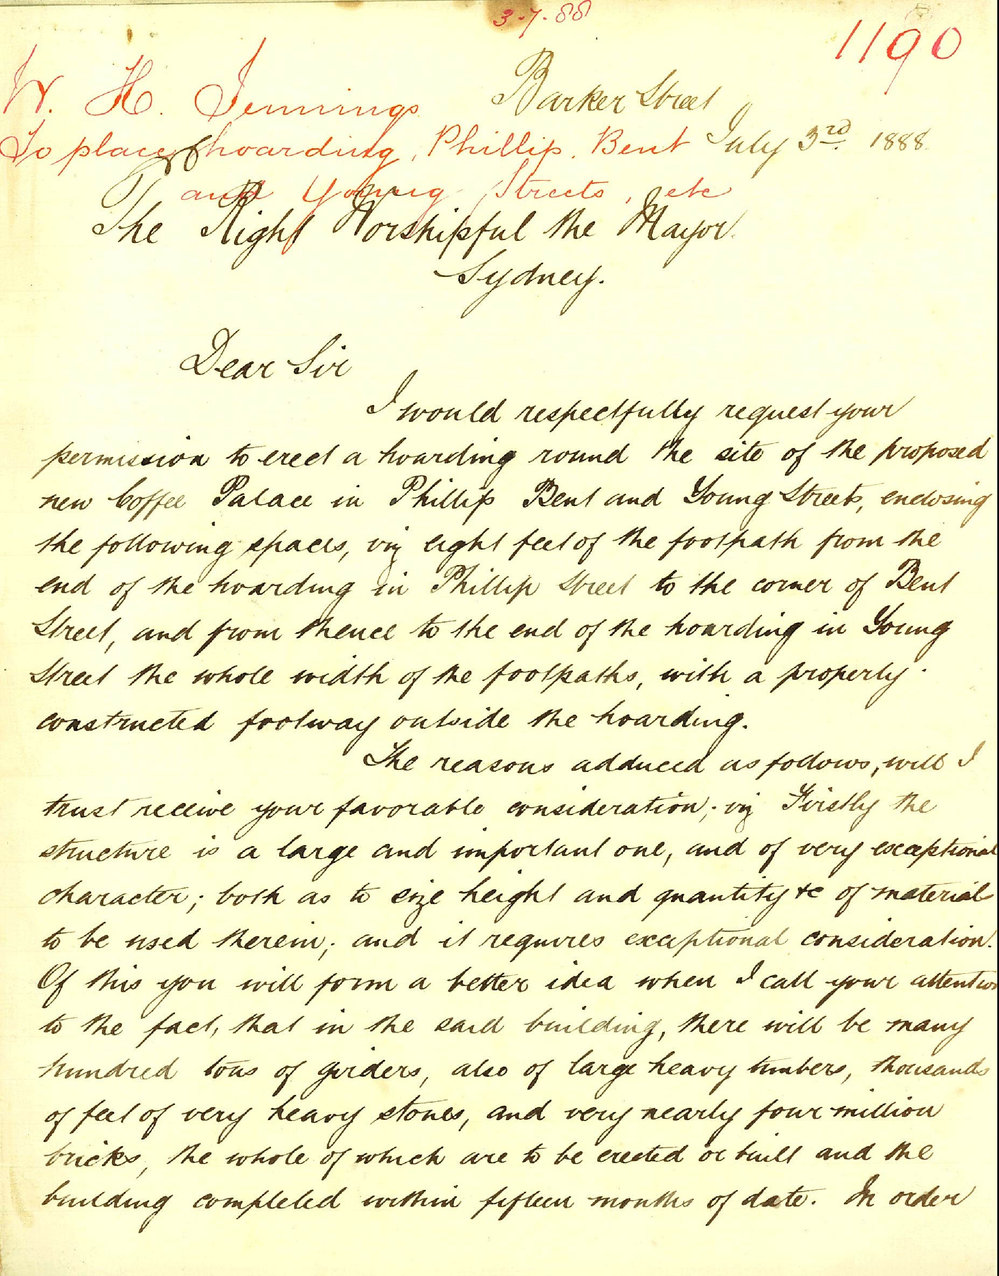 3.7.88
1190
W. H. Jennings
To place hoarding, Phillip, Bent
and Young Streets, etc
Barker Street
July 3rd 1888.
The Right Worshipful the Mayor.
Sydney.
Dear Sir
I would respectfully request your
permission to erect a hoarding round the site of the proposed
new Coffee Palace in Phillip Bent and Young Streets, enclosing
the following spaces, viz eight feet of the footpath from the
end of the hoarding in Phillip Street to the corner of Bent
Street, and from thence to the end of the hoarding in Young
Street the whole width of the footpaths, with a properly
constructed footway outside the hoarding.
The reasons adduced as follows, will I
trust receive your favorable consideration; viz Firstly the
structure is a large and important one, and of very exceptional
character; both as to size height and quantity &c of material
to be used therein; and it requires exceptional consideration.
Of this you will form a better idea when I call your attention
to the fact, that in the said building, there will be many
hundred tons of girders, also of large heavy timbers, thousands
of feet of very heavy stones, and very nearly four million
bricks, the whole of which are to be erected or built and the
building completed within fifteen months of date. In order